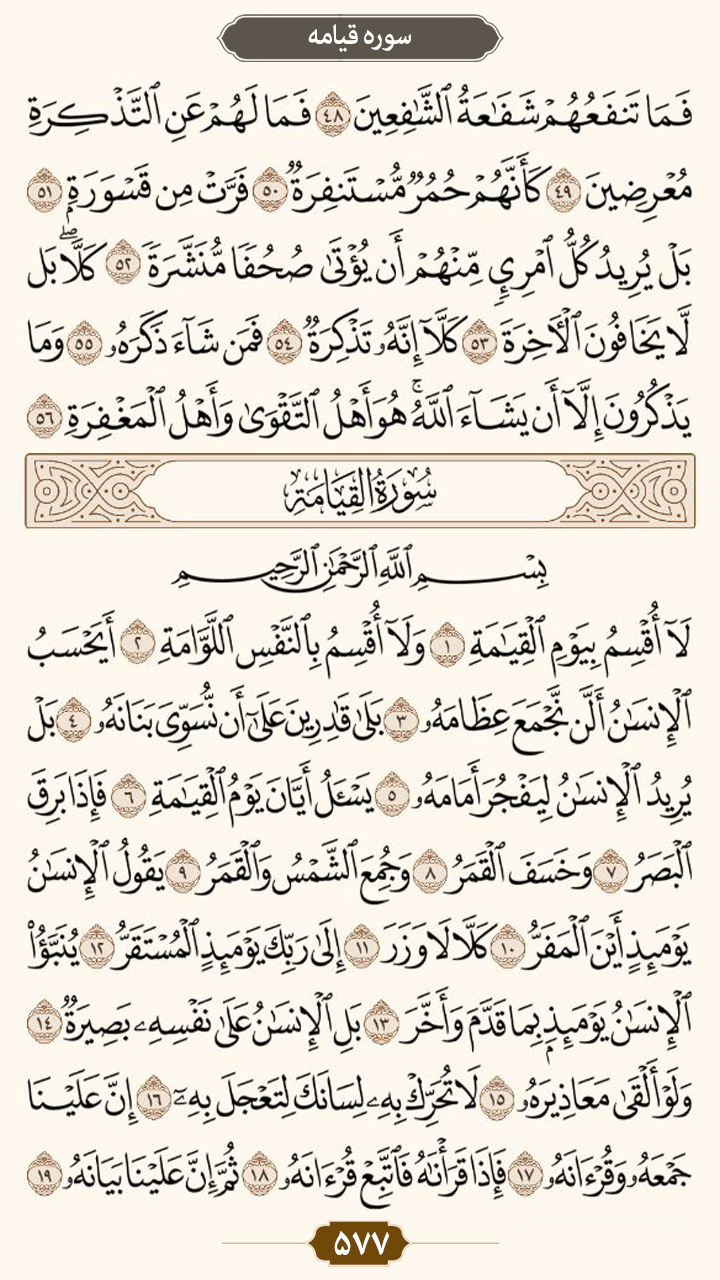 سوره قیامه
فَمَا تَنفَعُهُمْ شَفَٰعَةُ ٱلشَّٰفِعِينَ ٤٨ فَمَا لَهُمْ عَنِ ٱلتَّذْكِرَةِ
مُعْرِضِينَ ٤٩ كَأَنَّهُمْ حُمُرٌ مُّسْتَنفِرَةٌ ٥٠ فَرَّتْ مِن قَسْوَرَةٍۭ ٥١
بَلْ يُرِيدُ كُلُّ ٱمْرِئٍ مِّنْهُمْ أَن يُؤْتَىٰ صُحُفًا مُّنَشَّرَةً ٥٢ كَلَّا ۖ بَل
لَّا يَخَافُونَ ٱلْأَخِرَةَ ٥٣ كَلَّآ إِنَّهُۥ تَذْكِرَةٌ ٥٤ فَمَن شَآءَ ذَكَرَهُۥ ٥٥ وَمَا
يَذْكُرُونَ إِلَّآ أَن يَشَآءَ ٱللَّهُ ۚ هُوَ أَهْلُ ٱلتَّقْوَىٰ وَأَهْلُ ٱلْمَغْفِرَةِ ٥٦
سُورَةُ القِيَامَةِ
بِسْمِ ٱللَّهِ ٱلرَّحْمَٰنِ ٱلرَّحِيمِ
لَآ أُقْسِمُ بِيَوْمِ ٱلْقِيَٰمَةِ ١ وَلَآ أُقْسِمُ بِٱلنَّفْسِ ٱللَّوَّامَةِ ٢ أَيَحْسَبُ
ٱلْإِنسَٰنُ أَلَّن نَّجْمَعَ عِظَامَهُۥ ٣ بَلَىٰ قَٰدِرِينَ عَلَىٰٓ أَن نُّسَوِّىَ بَنَانَهُۥ ٤ بَلْ
يُرِيدُ ٱلْإِنسَٰنُ لِيَفْجُرَ أَمَامَهُۥ ٥ يَسْـَٔلُ أَيَّانَ يَوْمُ ٱلْقِيَٰمَةِ ٦ فَإِذَا بَرِقَ
ٱلْبَصَرُ ٧ وَخَسَفَ ٱلْقَمَرُ ٨ وَجُمِعَ ٱلشَّمْسُ وَٱلْقَمَرُ ٩ يَقُولُ ٱلْإِنسَٰنُ
يَوْمَئِذٍ أَيْنَ ٱلْمَفَرُّ ١٠ كَلَّا لَا وَزَرَ ١١ إِلَىٰ رَبِّكَ يَوْمَئِذٍ ٱلْمُسْتَقَرُّ ١٢ يُنَبَّؤُا۟
ٱلْإِنسَٰنُ يَوْمَئِذٍۭ بِمَا قَدَّمَ وَأَخَّرَ ١٣ بَلِ ٱلْإِنسَٰنُ عَلَىٰ نَفْسِهِۦ بَصِيرَةٌ ١٤
وَلَوْ أَلْقَىٰ مَعَاذِيرَهُۥ ١٥ لَا تُحَرِّكْ بِهِۦ لِسَانَكَ لِتَعْجَلَ بِهِۦٓ ١٦ إِنَّ عَلَيْنَا
جَمْعَهُۥ وَقُرْءَانَهُۥ ١٧ فَإِذَا قَرَأْنَٰهُ فَٱتَّبِعْ قُرْءَانَهُۥ ١٨ ثُمَّ إِنَّ عَلَيْنَا بَيَانَهُۥ ١٩
۵۷۷